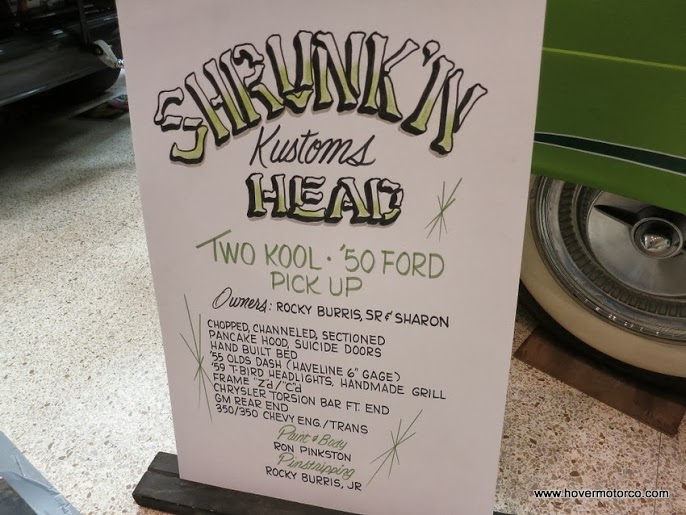 SHRUNK'N
Kustoms
HEAD
TWO KOOL · '50 FORD
PICK UP
Owners: ROCKY BURRIS, SR & SHARON
CHOPPED, CHANNELED, SECTIONED
PANCAKE HOOD, SUICIDE DOORS
HAND BUILT BED
'55 OLDS DASH (HAVELINE 6" GAGE)
'59 T-BIRD HEADLIGHTS, HANDMADE GRILL
FRAME "Z'd/"C'd
CHRYSLER TORSION BAR FT. END
GM REAR END
350/350 CHEVY ENG/TRANS
Paint & Body
RON PINKSTON
Pinstripping
ROCKY BURRIS, JR
www.hovermotorco.com